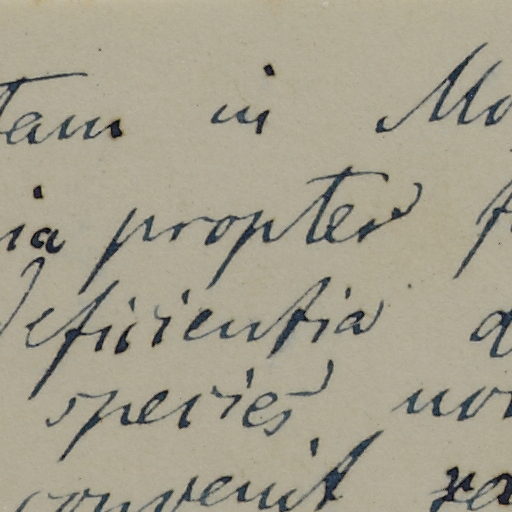 tam in Mo
ia propter f
deficientia q
species non
convenit